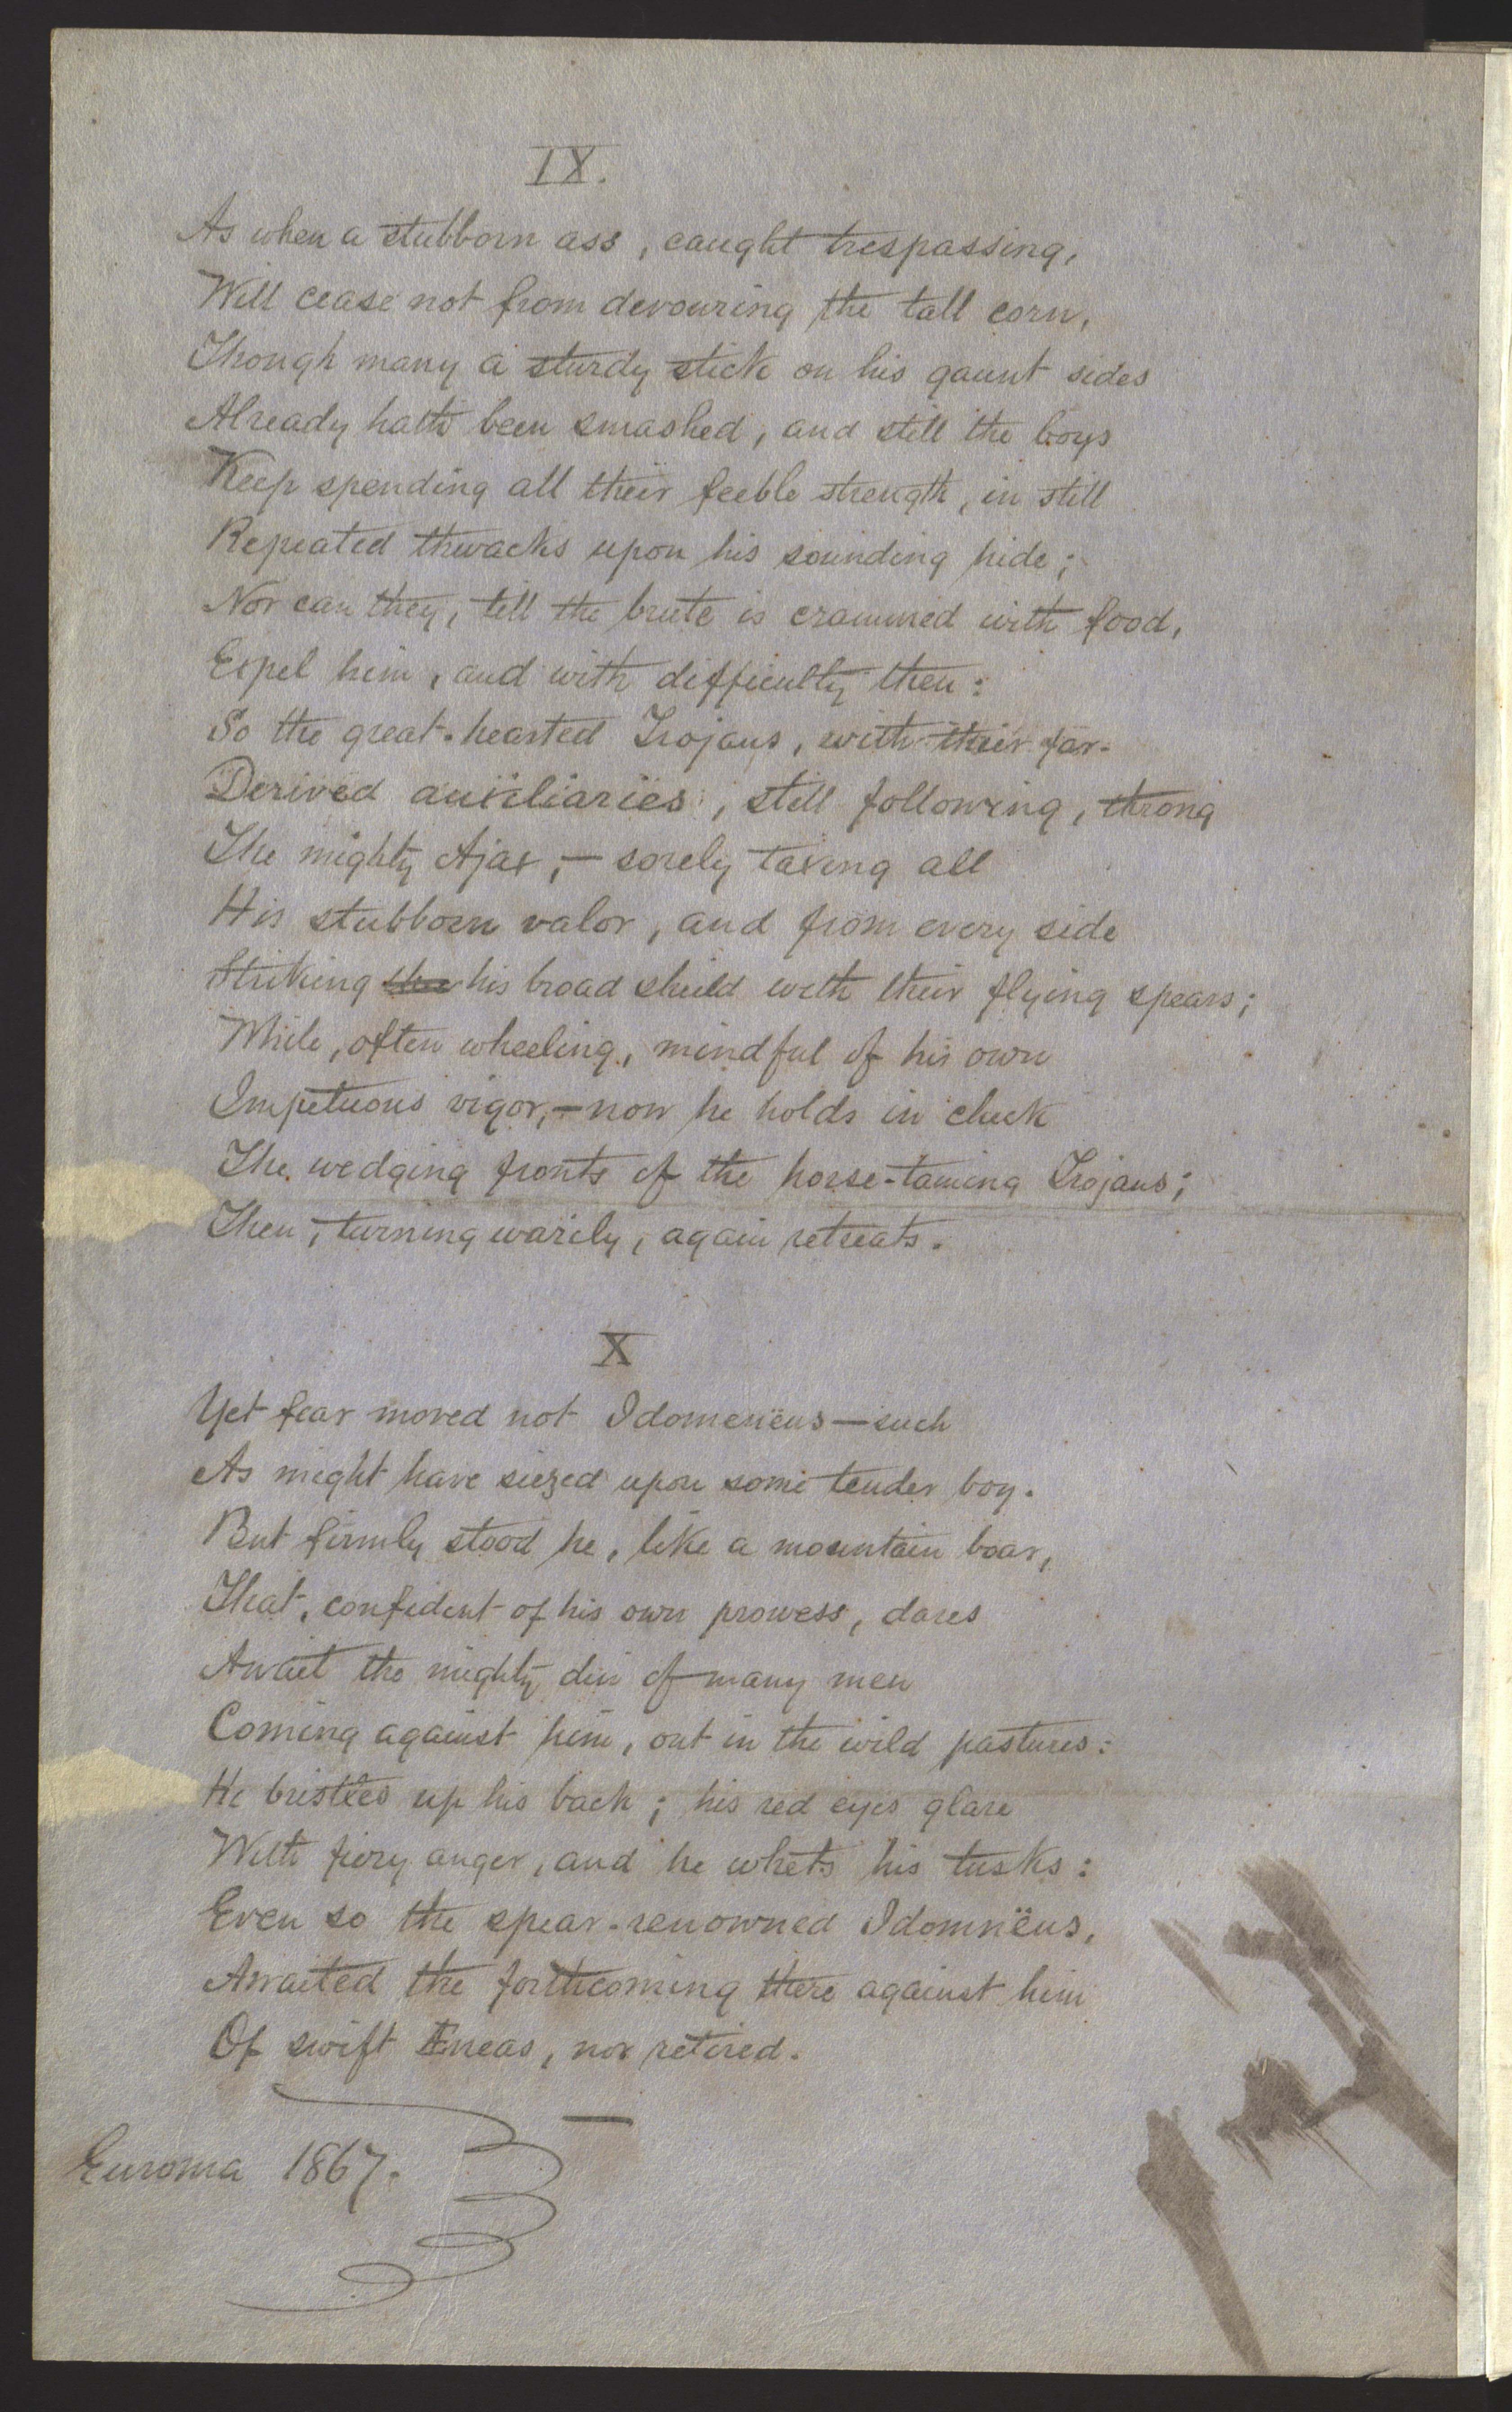 IX.
As when a stubborn ass, caught trespassing,
Will cease not from devouring the tall corn,
Though many a sturdy stick on his gaunt sides
Already hath been smashed, and still the boys
Keep spending all their feeble strength, in still
Repeated thwacks upon his sounding hide;
Nor can they, till the brute is crammed with food,
Expel him, and with difficulty then:
So the great-hearted Trojans, with their far-
Derived auxiliaries, still following, throng
The mighty Ajax,— sorely taxing all
His stubborn valor, and from every side
Striking his broad shield with their flying spears;
While, often wheeling, mindful of his own
Impetuous vigor,— now he holds in check
The wedging fronts of the horse-taming Trojans;
Then, turning warily, again retreats.
X
Yet fear moved not Idomenëus—such
As might have siezed upon some tender boy.
But firmly stood he, like a mountain boar,
That, confident of his own prowess, dares
Await the mighty din of many men
Coming against him, out in the wild pastures:
He bristles up his back; his red eyes glare
With fiery anger, and he whets his tusks:
Even so the spear-renowned Idomnëus,
Awaited the forthcoming there against him
Of swift Æneas, nor retired.
Euroma 1867.